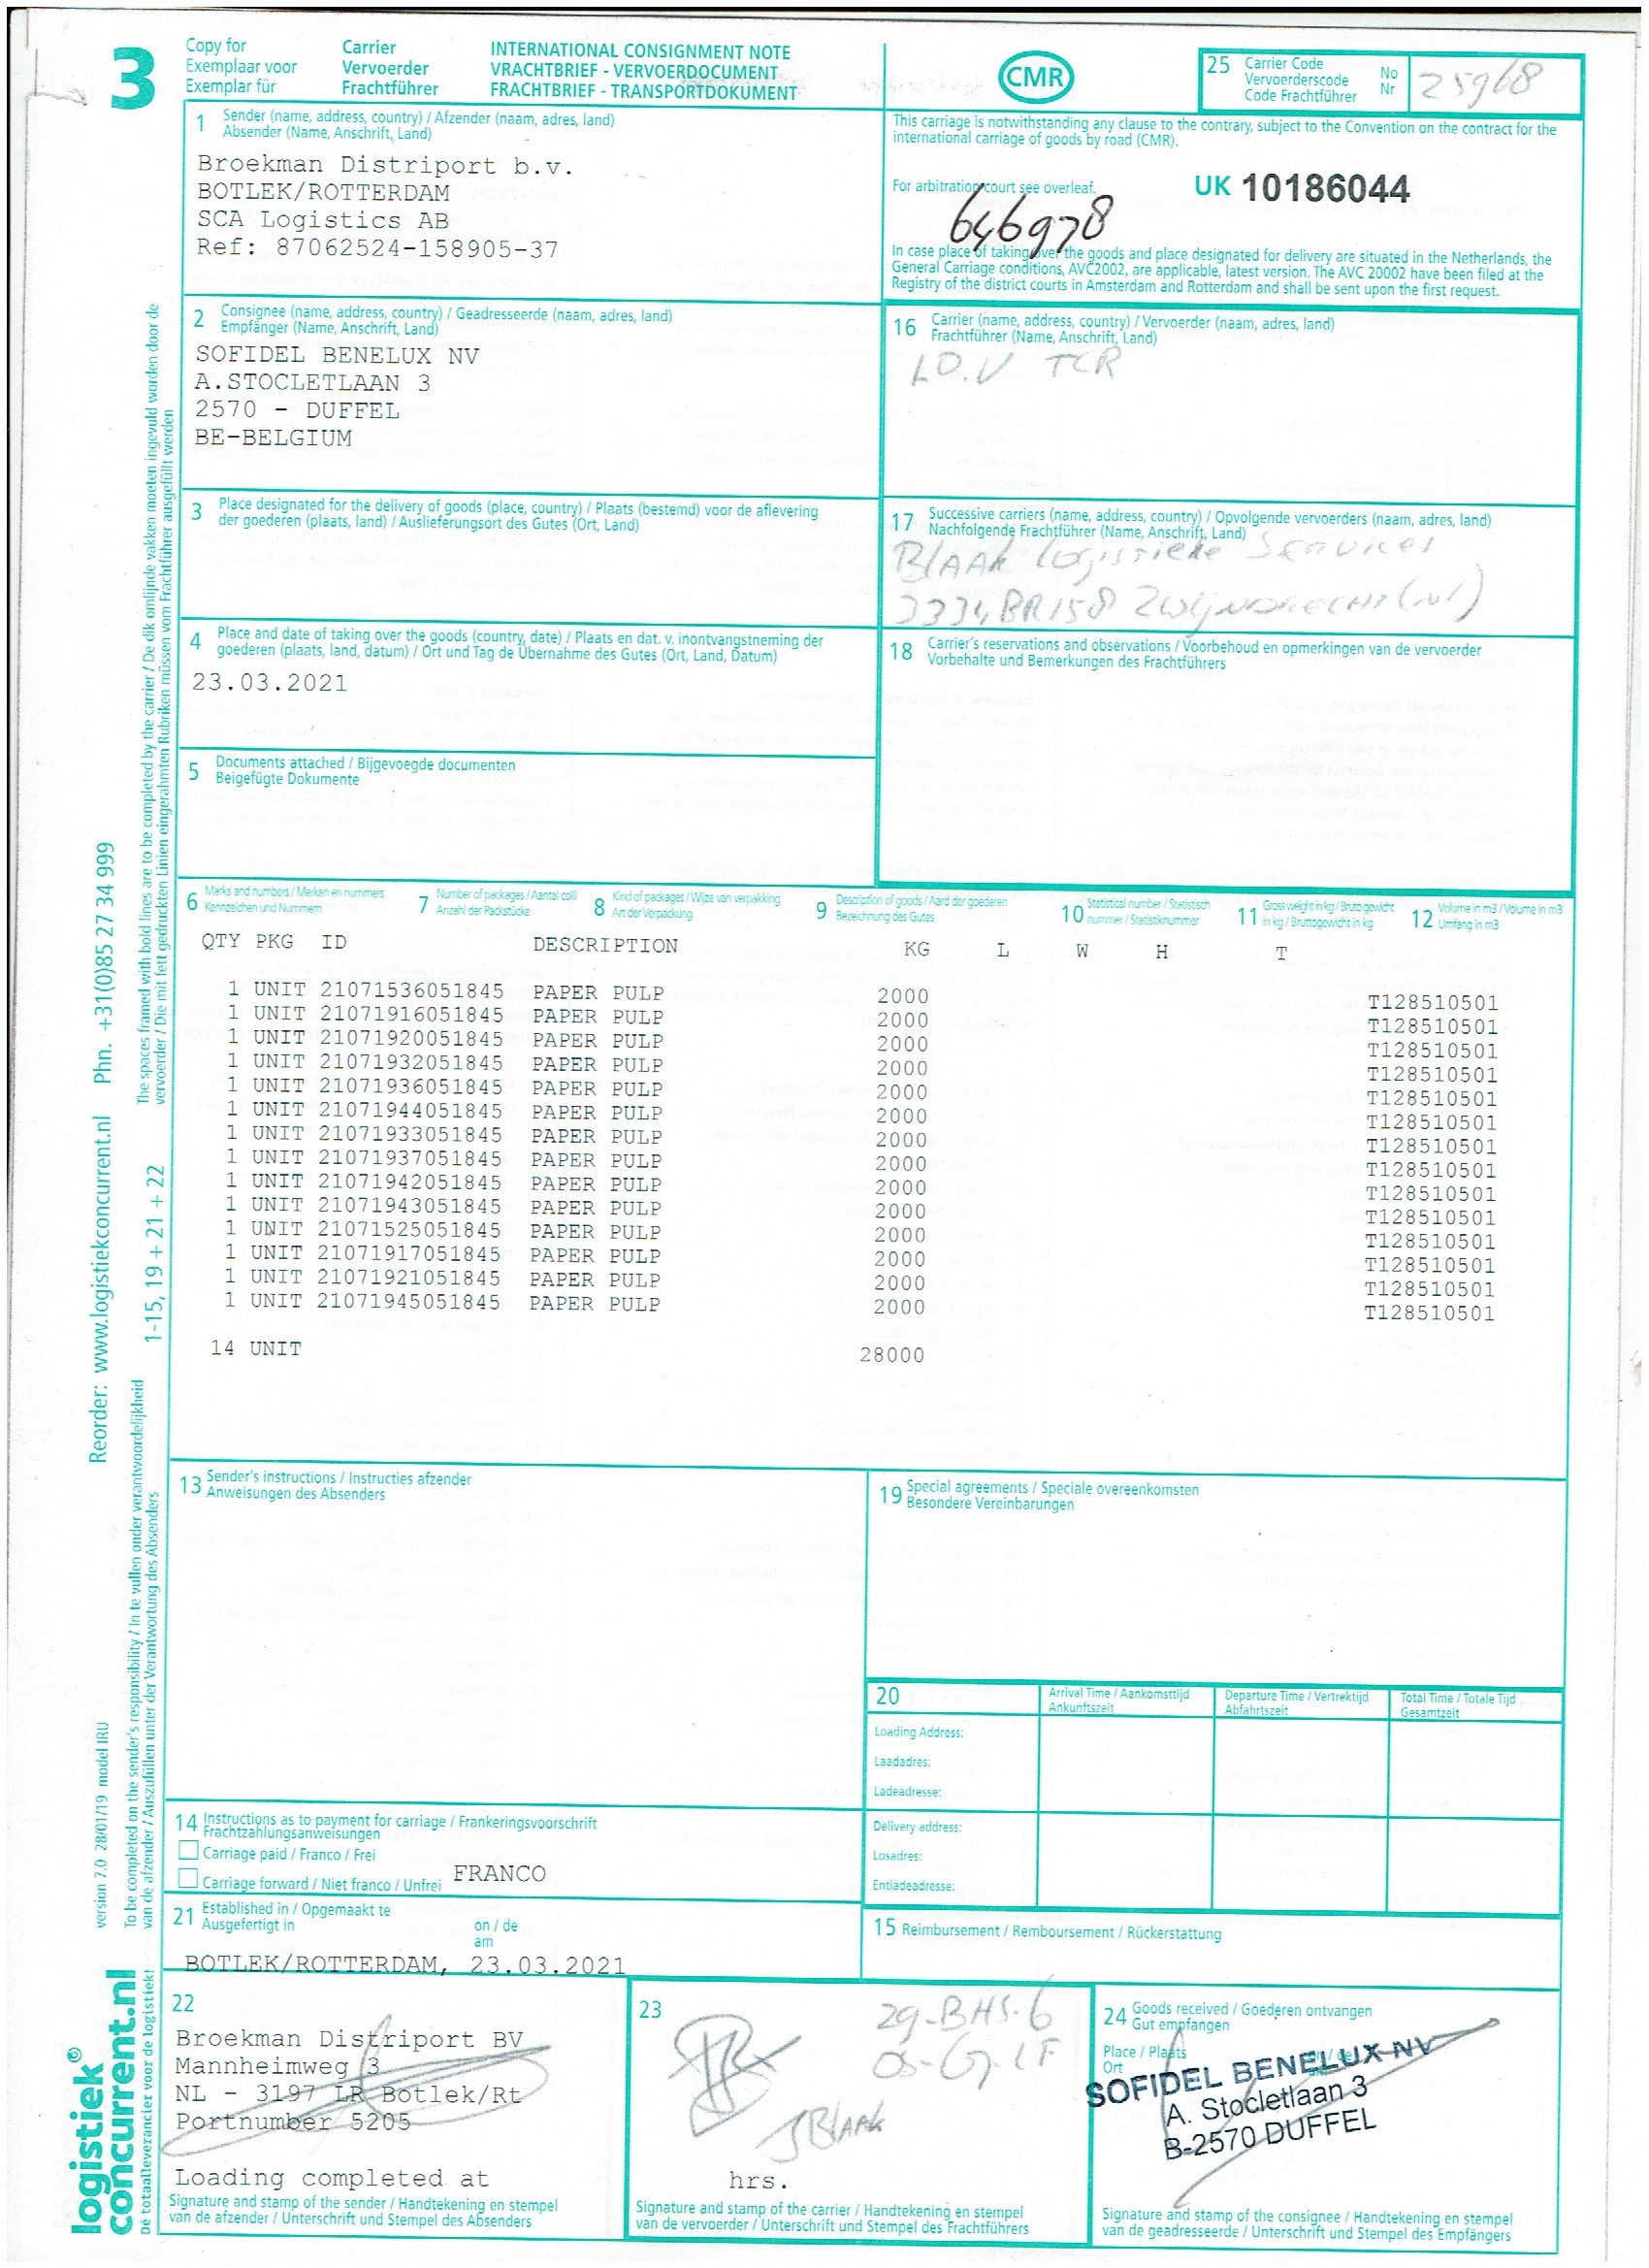 3
Copy for
Exemplaar voor
Exemplar für
Carrier
Vervoerder
Frachtführer
INTERNATIONAL CONSIGNMENT NOTE
VRACHTBRIEF - VERVOERDOCUMENT
FRACHTBRIEF - TRANSPORTDOKUMENT
CMR
25 Carrier Code
Vervoerderscode
Code Frachtführer
No
Nr
25968
1 Sender (name, address, country) / Afzender (naam, adres, land)
Absender (Name, Anschrift, Land)
Broekman Distriport b.v.
BOTLEK/ROTTERDAM
SCA Logistics AB
Ref: 87062524-158905-37
This carriage is notwithstanding any clause to the contrary, subject to the Convention on the contract for the
international carriage of goods by road (CMR).
For arbitration court see overleaf.
UK 10186044
646978
In case place of taking over the goods and place designated for delivery are situated in the Netherlands, the
General Carriage conditions, AVC2002, are applicable, latest version. The AVC 20002 have been filed at the
Registry of the district courts in Amsterdam and Rotterdam and shall be sent upon the first request.
2 Consignee (name, address, country) / Geadresseerde (naam, adres, land)
Empfänger (Name, Anschrift, Land)
SOFIDEL BENELUX NV
A.STOCLETLAAN 3
2570 - DUFFEL
BE-BELGIUM
16 Carrier (name, address, country) / Vervoerder (naam, adres, land)
Frachtführer (Name, Anschrift, Land)
I.O.V TCR
3 Place designated for the delivery of goods (place, country) / Plaats (bestemd) voor de aflevering
der goederen (plaats, land) / Auslieferungsort des Gutes (Ort, Land)
17 Successive carriers (name, address, country) / Opvolgende vervoerders (naam, adres, land)
Nachfolgende Frachtführer (Name, Anschrift, Land)
Blaak Logistieke Services
3334BR158 Zwijndrecht (nl)
4 Place and date of taking over the goods (country, date) / Plaats en dat. v. inontvangstneming der
goederen (plaats, land, datum) / Ort und Tag de Übernahme des Gutes (Ort, Land, Datum)
23.03.2021
18 Carrier's reservations and observations / Voorbehoud en opmerkingen van de vervoerder
Vorbehalte und Bemerkungen des Frachtführers
5 Documents attached / Bijgevoegde documenten
Beigefügte Dokumente
6 Marks and numbers / Merken en nummers
Kennzeichen und Nummern
7 Number of packages / Aantal colli
Anzahl der Packstücke
8 Kind of packages / Wijze van verpakking
Art der Verpackung
9 Description of goods / Aard der goederen
Bezeichnung des Gutes
10 Statistical number / Statistisch
nummer / Statistiknummer
11 Gross weight in kg / Bruto gewicht
in kg / Bruttogewicht in kg
12 Volume in m3 / Volume in m3
Umfang in m3
QTY PKG ID DESCRIPTION KG L W H T
1 UNIT 21071536051845 PAPER PULP 2000 T128510501
1 UNIT 21071916051845 PAPER PULP 2000 T128510501
1 UNIT 21071920051845 PAPER PULP 2000 T128510501
1 UNIT 21071932051845 PAPER PULP 2000 T128510501
1 UNIT 21071936051845 PAPER PULP 2000 T128510501
1 UNIT 21071944051845 PAPER PULP 2000 T128510501
1 UNIT 21071933051845 PAPER PULP 2000 T128510501
1 UNIT 21071937051845 PAPER PULP 2000 T128510501
1 UNIT 21071942051845 PAPER PULP 2000 T128510501
1 UNIT 21071943051845 PAPER PULP 2000 T128510501
1 UNIT 21071525051845 PAPER PULP 2000 T128510501
1 UNIT 21071917051845 PAPER PULP 2000 T128510501
1 UNIT 21071921051845 PAPER PULP 2000 T128510501
1 UNIT 21071945051845 PAPER PULP 2000 T128510501
14 UNIT 28000
13 Sender's instructions / Instructies afzender
Anweisungen des Absenders
19 Special agreements / Speciale overeenkomsten
Besondere Vereinbarungen
20
Arrival Time / Aankomsttijd
Ankunftszeit
Departure Time / Vertrektijd
Abfahrtszeit
Total Time / Totale Tijd
Gesamtzeit
Loading Address:
Laadadres:
Ladeadresse:
Delivery address:
Losadres:
Entladeadresse:
14 Instructions as to payment for carriage / Frankeringsvoorschrift
Frachtzahlungsanweisungen
Carriage paid / Franco / Frei
Carriage forward / Niet franco / Unfrei
FRANCO
21 Established in / Opgemaakt te
Ausgefertigt in
on / de
am
BOTLEK/ROTTERDAM, 23.03.2021
15 Reimbursement / Remboursement / Rückerstattung
22
Broekman Distriport BV
Mannheimweg 3
NL - 3197 LR Botlek/Rt
Portnumber 5205
Loading completed at
Signature and stamp of the sender / Handtekening en stempel
van de afzender / Unterschrift und Stempel des Absenders
23
29-BHS-6
JBlaak
hrs.
Signature and stamp of the carrier / Handtekening en stempel
van de vervoerder / Unterschrift und Stempel des Frachtführers
24 Goods received / Goederen ontvangen
Gut empfangen
Place / Plaats
Ort
SOFIDEL BENELUX NV
A. Stocletlaan 3
B-2570 DUFFEL
Signature and stamp of the consignee / Handtekening en stempel
van de geadresseerde / Unterschrift und Stempel des Empfängers
The spaces framed with bold lines are to be completed by the carrier / De dik omlijnde vakken moeten ingevuld worden door de
vervoerder / Die mit fett gedruckten Linien eingerahmten Rubriken müssen vom Frachtführer ausgefüllt werden
Reorder: www.logistiekconcurrent.nl Phn. +31(0)85 27 34 999
1-15, 19 + 21 + 22
To be completed on the sender's responsibility / In te vullen onder verantwoordelijkheid
van de afzender / Auszufüllen unter der Verantwortung des Absenders
version 7.0 28/01/19 model IRU
logistiek®
concurrent.nl
Dé totaalleverancier voor de logistiek!